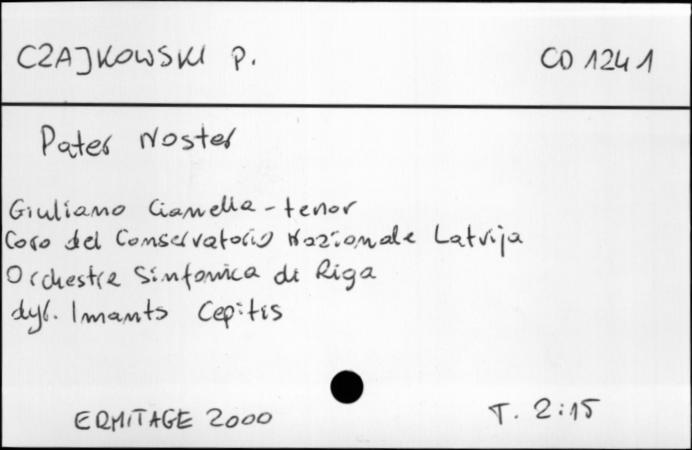 CZAJKOWSKI P. CD 1241
Pater Noster
Giuliano Cianella - tenor
Coro del Conservatorio Nazionale Latvija
Orchestra Sinfonica di Riga
dyr. Imants Cepitis
ERMITAGE 2000 T. 2:15